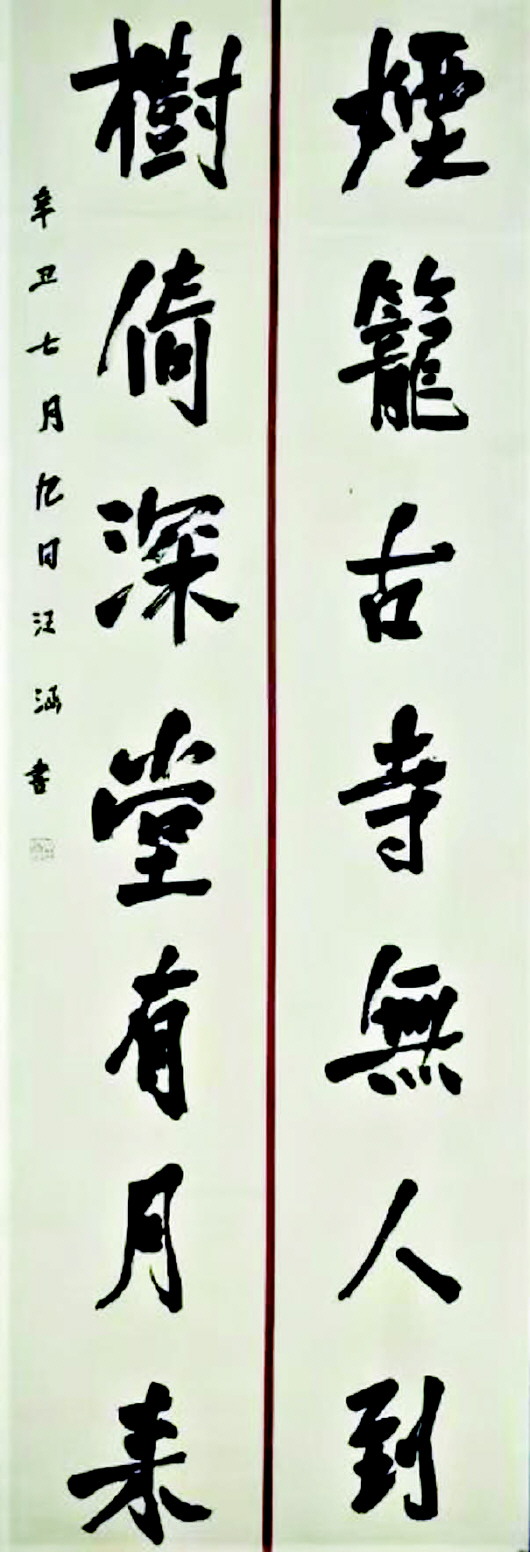 煙籠古寺無人到
樹倚深堂有月来
辛丑七月九日汪涵書